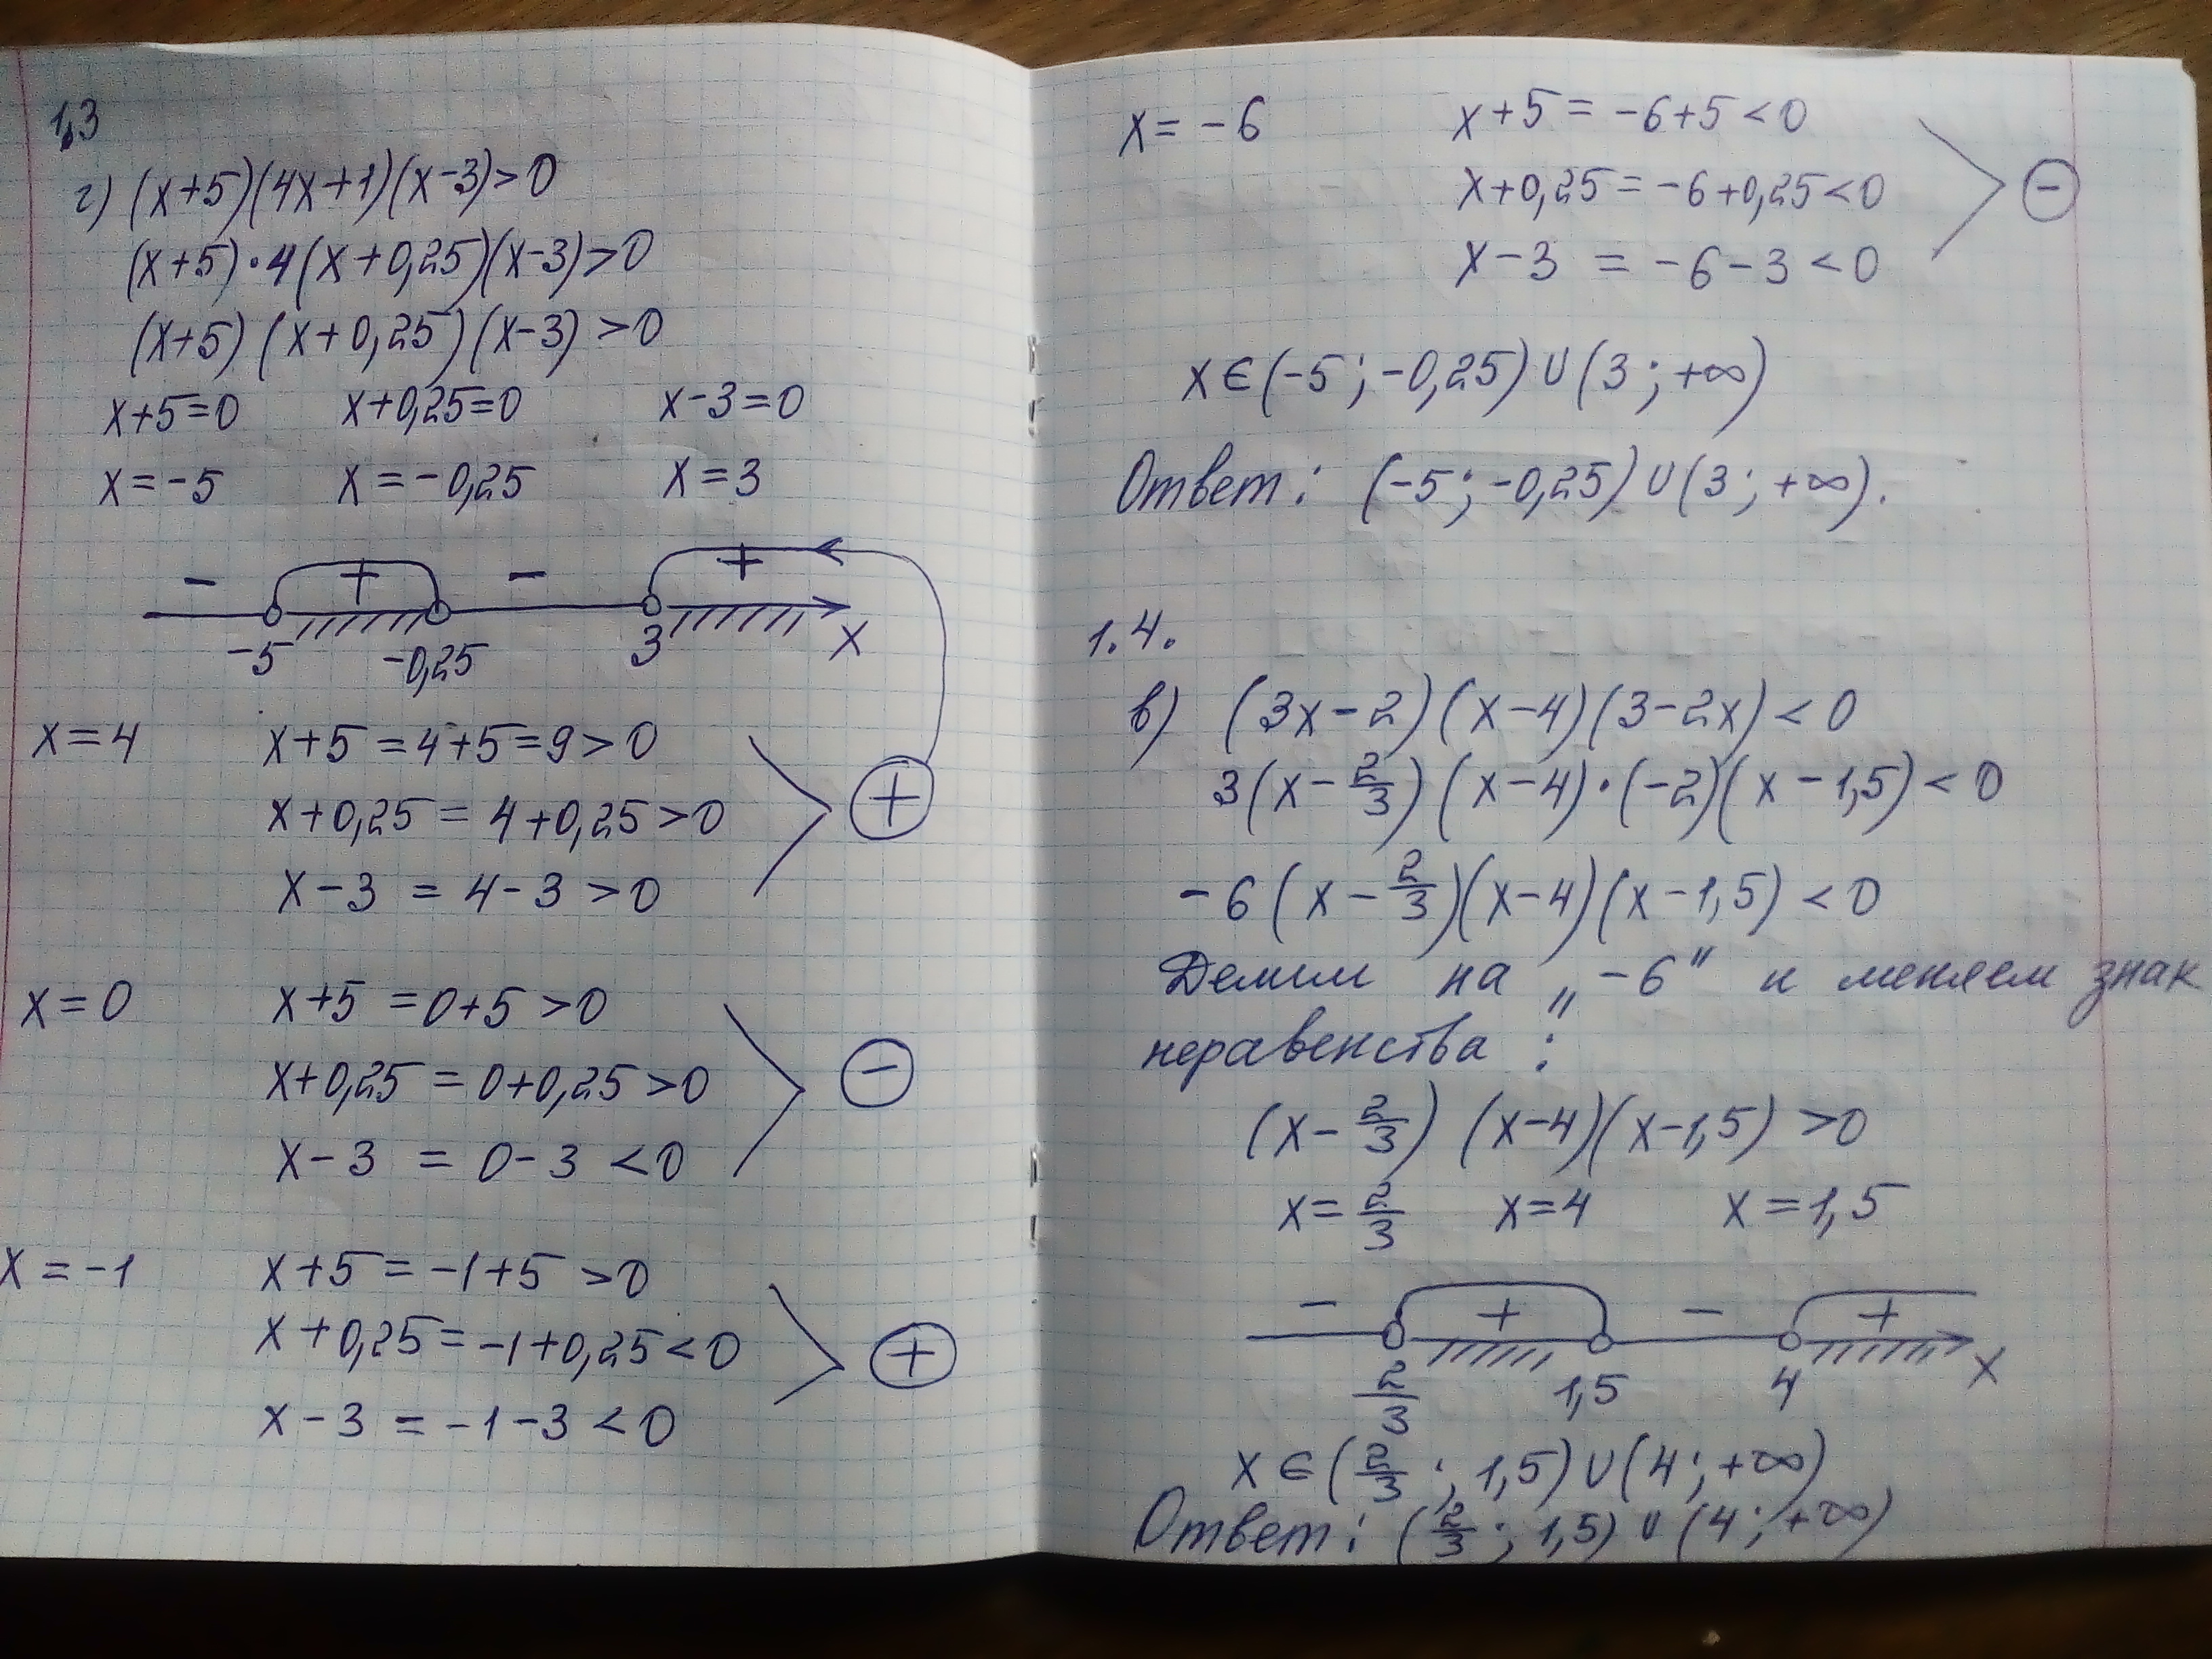 1.3
г) (x+5)(4x+1)(x-3)>0
(x+5)·4(x+0,25)(x-3)>0
(x+5)(x+0,25)(x-3)>0
x+5=0 x+0,25=0 x-3=0
x=-5 x=-0,25 x=3
- + - +
-5 -0,25 3 x
x=4 x+5=4+5=9>0
x+0,25=4+0,25>0 +
x-3=4-3>0
x=0 x+5=0+5>0
x+0,25=0+0,25>0 -
x-3=0-3<0
x=-1 x+5=-1+5>0
x+0,25=-1+0,25<0 +
x-3=-1-3<0
x=-6 x+5=-6+5<0
x+0,25=-6+0,25<0 -
x-3=-6-3<0
x∈(-5;-0,25)∪(3;+∞)
Ответ: (-5;-0,25)∪(3;+∞).
1.4.
в) (3x-2)(x-4)(3-2x)<0
3(x-2/3)(x-4)·(-2)(x-1,5)<0
-6(x-2/3)(x-4)(x-1,5)<0
Делим на „-6" и меняем знак
неравенства:
(x-2/3)(x-4)(x-1,5)>0
x=2/3 x=4 x=1,5
- + - +
2/3 1,5 4 x
x∈(2/3;1,5)∪(4;+∞)
Ответ: (2/3;1,5)∪(4;+∞)